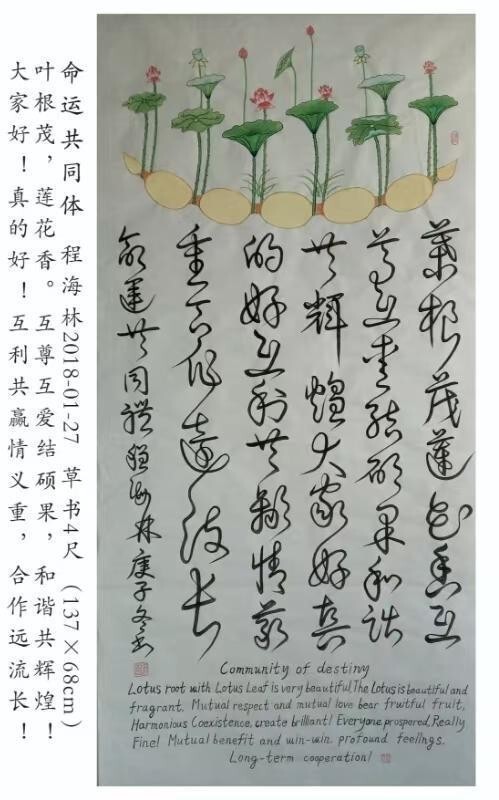 命运共同体 程海林2018-01-27 草书4尺 (137×68cm)
叶根茂，莲花香。互尊互爱结硕果，和谐共辉煌！
大家好！真的好！互利共赢情义重，合作远流长！
葉根茂蓮花香互
尊互爱結硕果和谐
共輝煌大家好真
的好互利共赢情義
重合作遠流长
命運共同體程海林庚子冬書
Community of destiny
Lotus root with Lotus Leaf is very beautiful,The Lotus is beautiful and
fragrant. Mutual respect and mutual love bear fruitful fruit,
Harmonious Coexistence, create brilliant! Everyone prospered, Really
Fine! Mutual benefit and win-win. profound feelings.
Long-term cooperation!